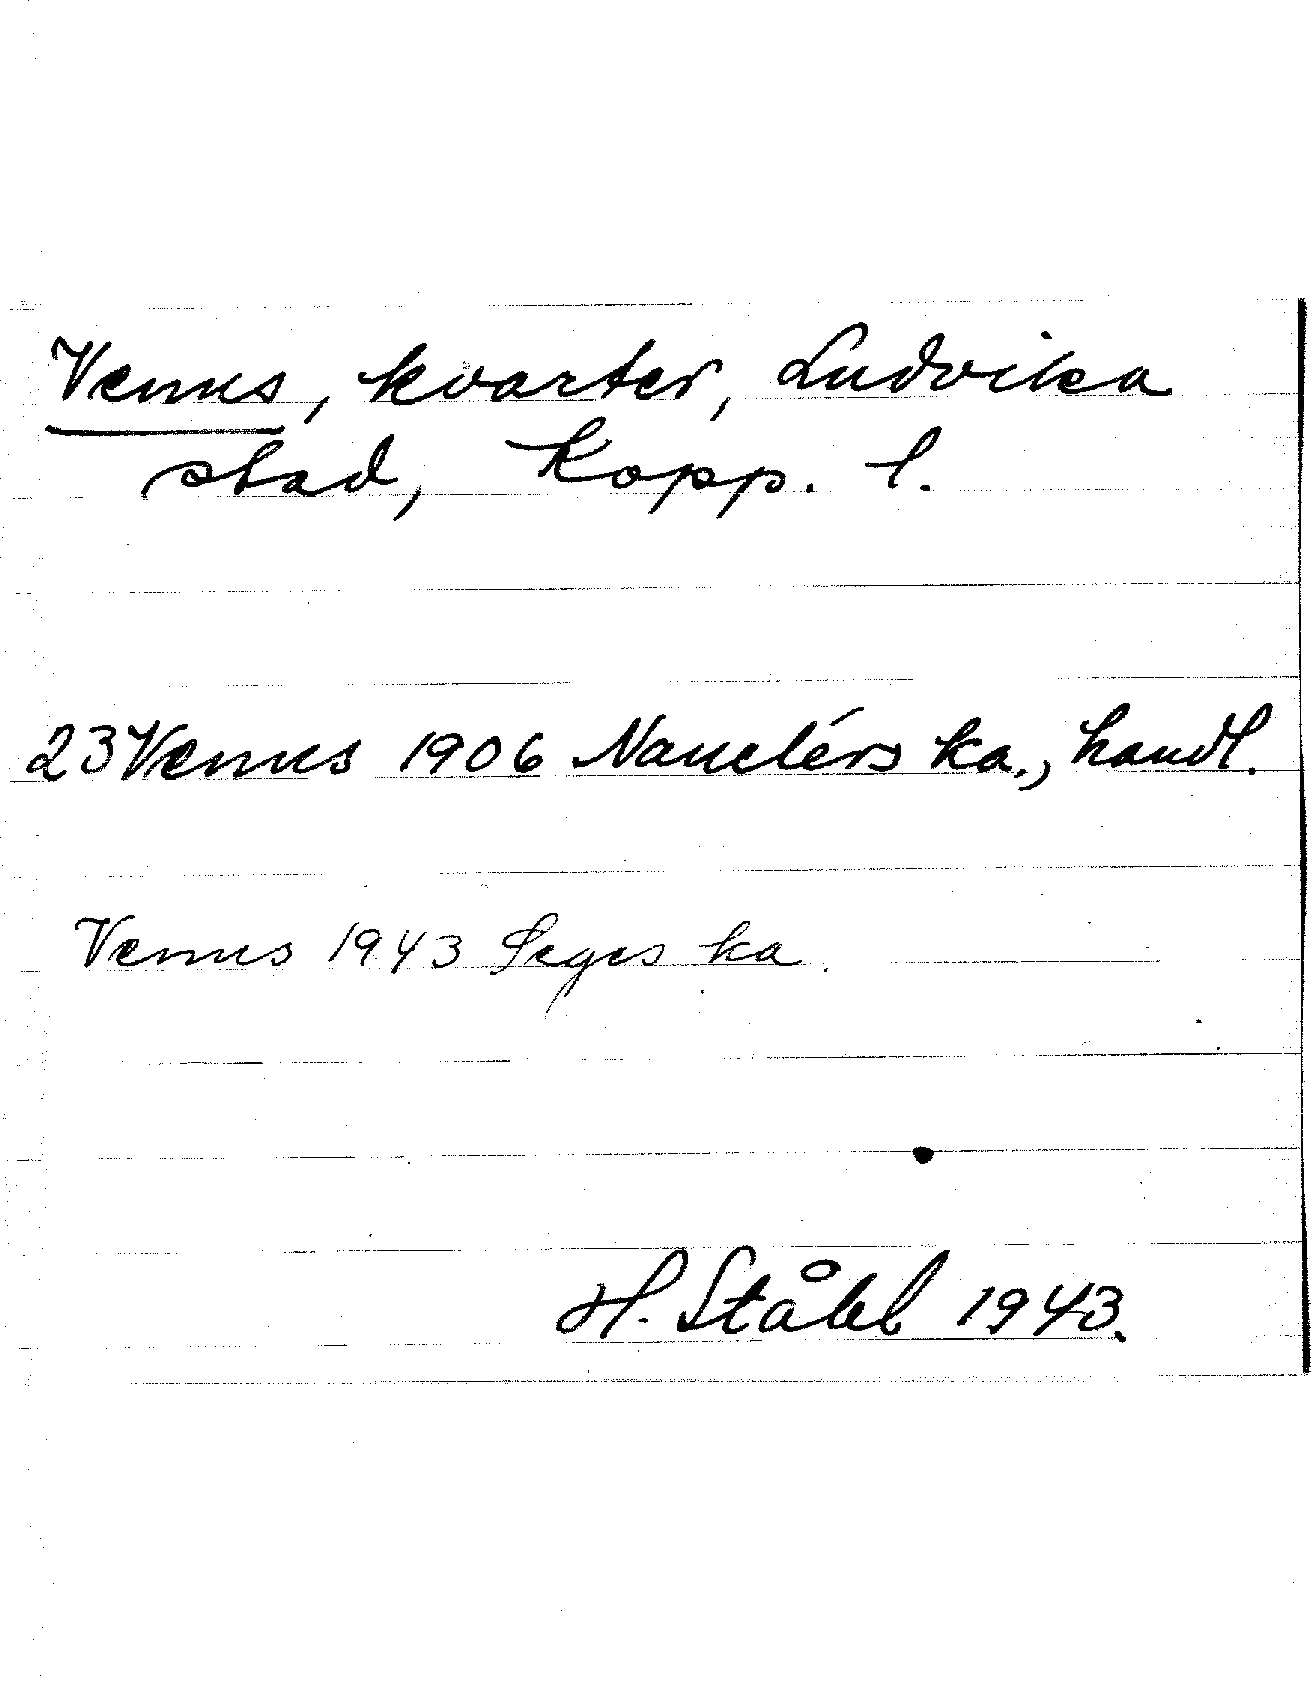 Venus, kvarter, Ludvika
stad, Kopp. l.
23 Venus 1906 Nauclérs ka., handl.
Venus 1943 Seges ka.
H. Ståhl 1943.